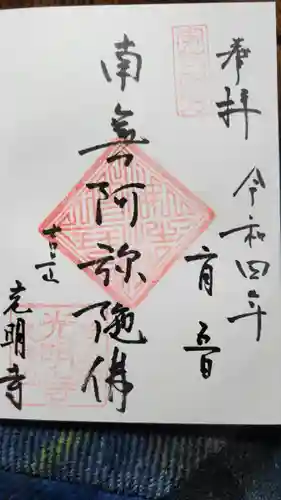 奉拝
令和四年
南無阿弥陀佛
吉正
光明寺